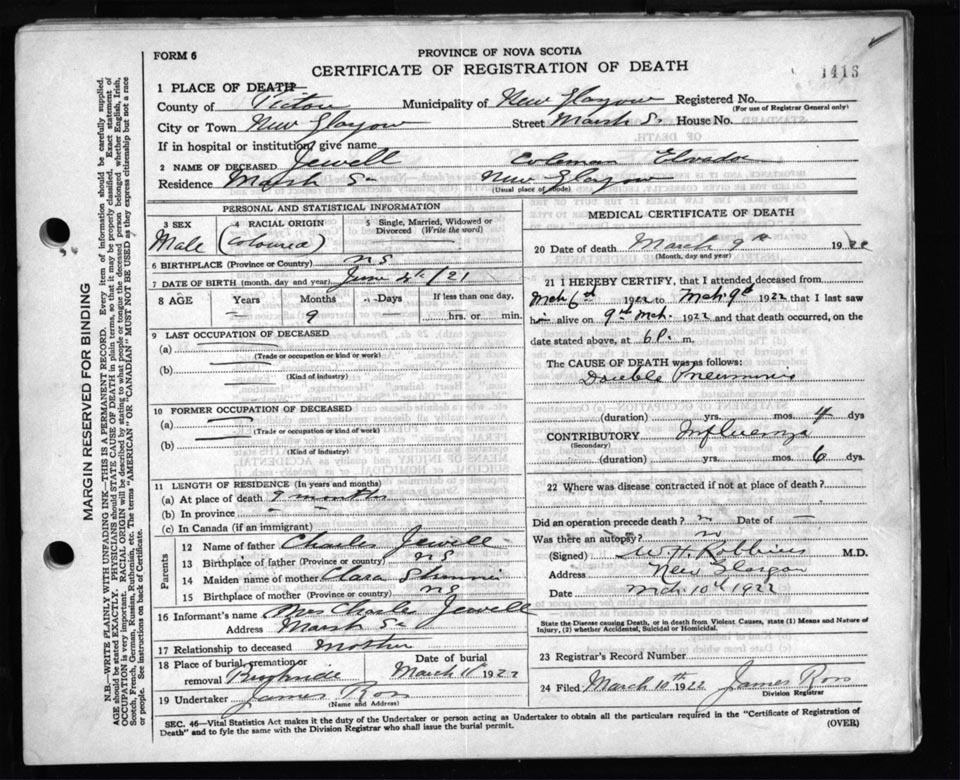 FORM 6
PROVINCE OF NOVA SCOTIA
CERTIFICATE OF REGISTRATION OF DEATH
1413
1 PLACE OF DEATH
County of Pictou Municipality of New Glasgow Registered No.
(For use of Registrar General only)
City or Town New Glasgow Street Marsh St House No.
If in hospital or institution, give name
2 NAME OF DECEASED Jewell Coleman
Residence Marsh St New Glasgow
(Usual place of abode)
PERSONAL AND STATISTICAL INFORMATION
3 SEX 4 RACIAL ORIGIN 5 Single, Married, Widowed or Divorced (Write the word)
Male (Coloured)
6 BIRTHPLACE (Province or Country) N S
7 DATE OF BIRTH (month, day and year) June 4th/21
8 AGE Years Months Days If less than one day,
— 9 hrs. or min.
9 LAST OCCUPATION OF DECEASED
(a)
(Trade or occupation or kind or work)
(b)
(Kind of industry)
10 FORMER OCCUPATION OF DECEASED
(a)
(Trade or occupation or kind of work)
(b)
(Kind of industry)
11 LENGTH OF RESIDENCE (In years and months)
(a) At place of death 9 months
(b) In province
(c) In Canada (if an immigrant)
Parents
12 Name of father Charles Jewell
13 Birthplace of father (Province or Country) N S
14 Maiden name of mother Clara
15 Birthplace of mother (Province or Country) N S
16 Informant's name Mrs Charles Jewell
Address Marsh St
17 Relationship to deceased Mother
18 Place of burial, cremation or removal Date of burial
March 11 1922
19 Undertaker James Ross
(Name and Address)
MEDICAL CERTIFICATE OF DEATH
20 Date of death March 9th 1922
(Month, day and year)
21 I HEREBY CERTIFY, that I attended deceased from
Mch 6th 1922 to Mch 9th 1922 that I last saw
him alive on 9th Mch. 1922 and that death occurred, on the
date stated above, at 6 P. m.
The CAUSE OF DEATH was as follows:
Double Pneumonia
(duration) yrs. mos. 4 dys
CONTRIBUTORY Influenza
(Secondary)
(duration) yrs. mos. 6 dys.
22 Where was disease contracted if not at place of death?
Did an operation precede death? no Date of —
Was there an autopsy? no
(Signed) W. H. Robbins M.D.
Address New Glasgow
Date Mch 10th 1922
State the Disease causing Death, or in death from Violent Causes, state (1) Means and Nature of Injury, (2) whether Accidental, Suicidal or Homicidal.
23 Registrar's Record Number
24 Filed March 10th 1922 James Ross
Division Registrar
SEC. 46—Vital Statistics Act makes it the duty of the Undertaker or person acting as Undertaker to obtain all the particulars required in the "Certificate of Registration of
Death" and to fyle the same with the Division Registrar who shall issue the burial permit. (OVER)
MARGIN RESERVED FOR BINDING
N.B.—WRITE PLAINLY WITH UNFADING INK—THIS IS A PERMANENT RECORD. Every item of information should be carefully supplied.
AGE should be stated EXACTLY. PHYSICIANS should STATE CAUSE OF DEATH in plain terms, so that it may be properly classified. Exact statement of
OCCUPATION is very important. RACIAL ORIGIN will be described by stating to what people or tongue the deceased person belonged whether English, Irish,
Scotch, French, German, Russian, Ruthenian, etc. The terms "AMERICAN" OR "CANADIAN" MUST NOT BE USED as they express citizenship but not a race
or people. See instructions on back of Certificate.